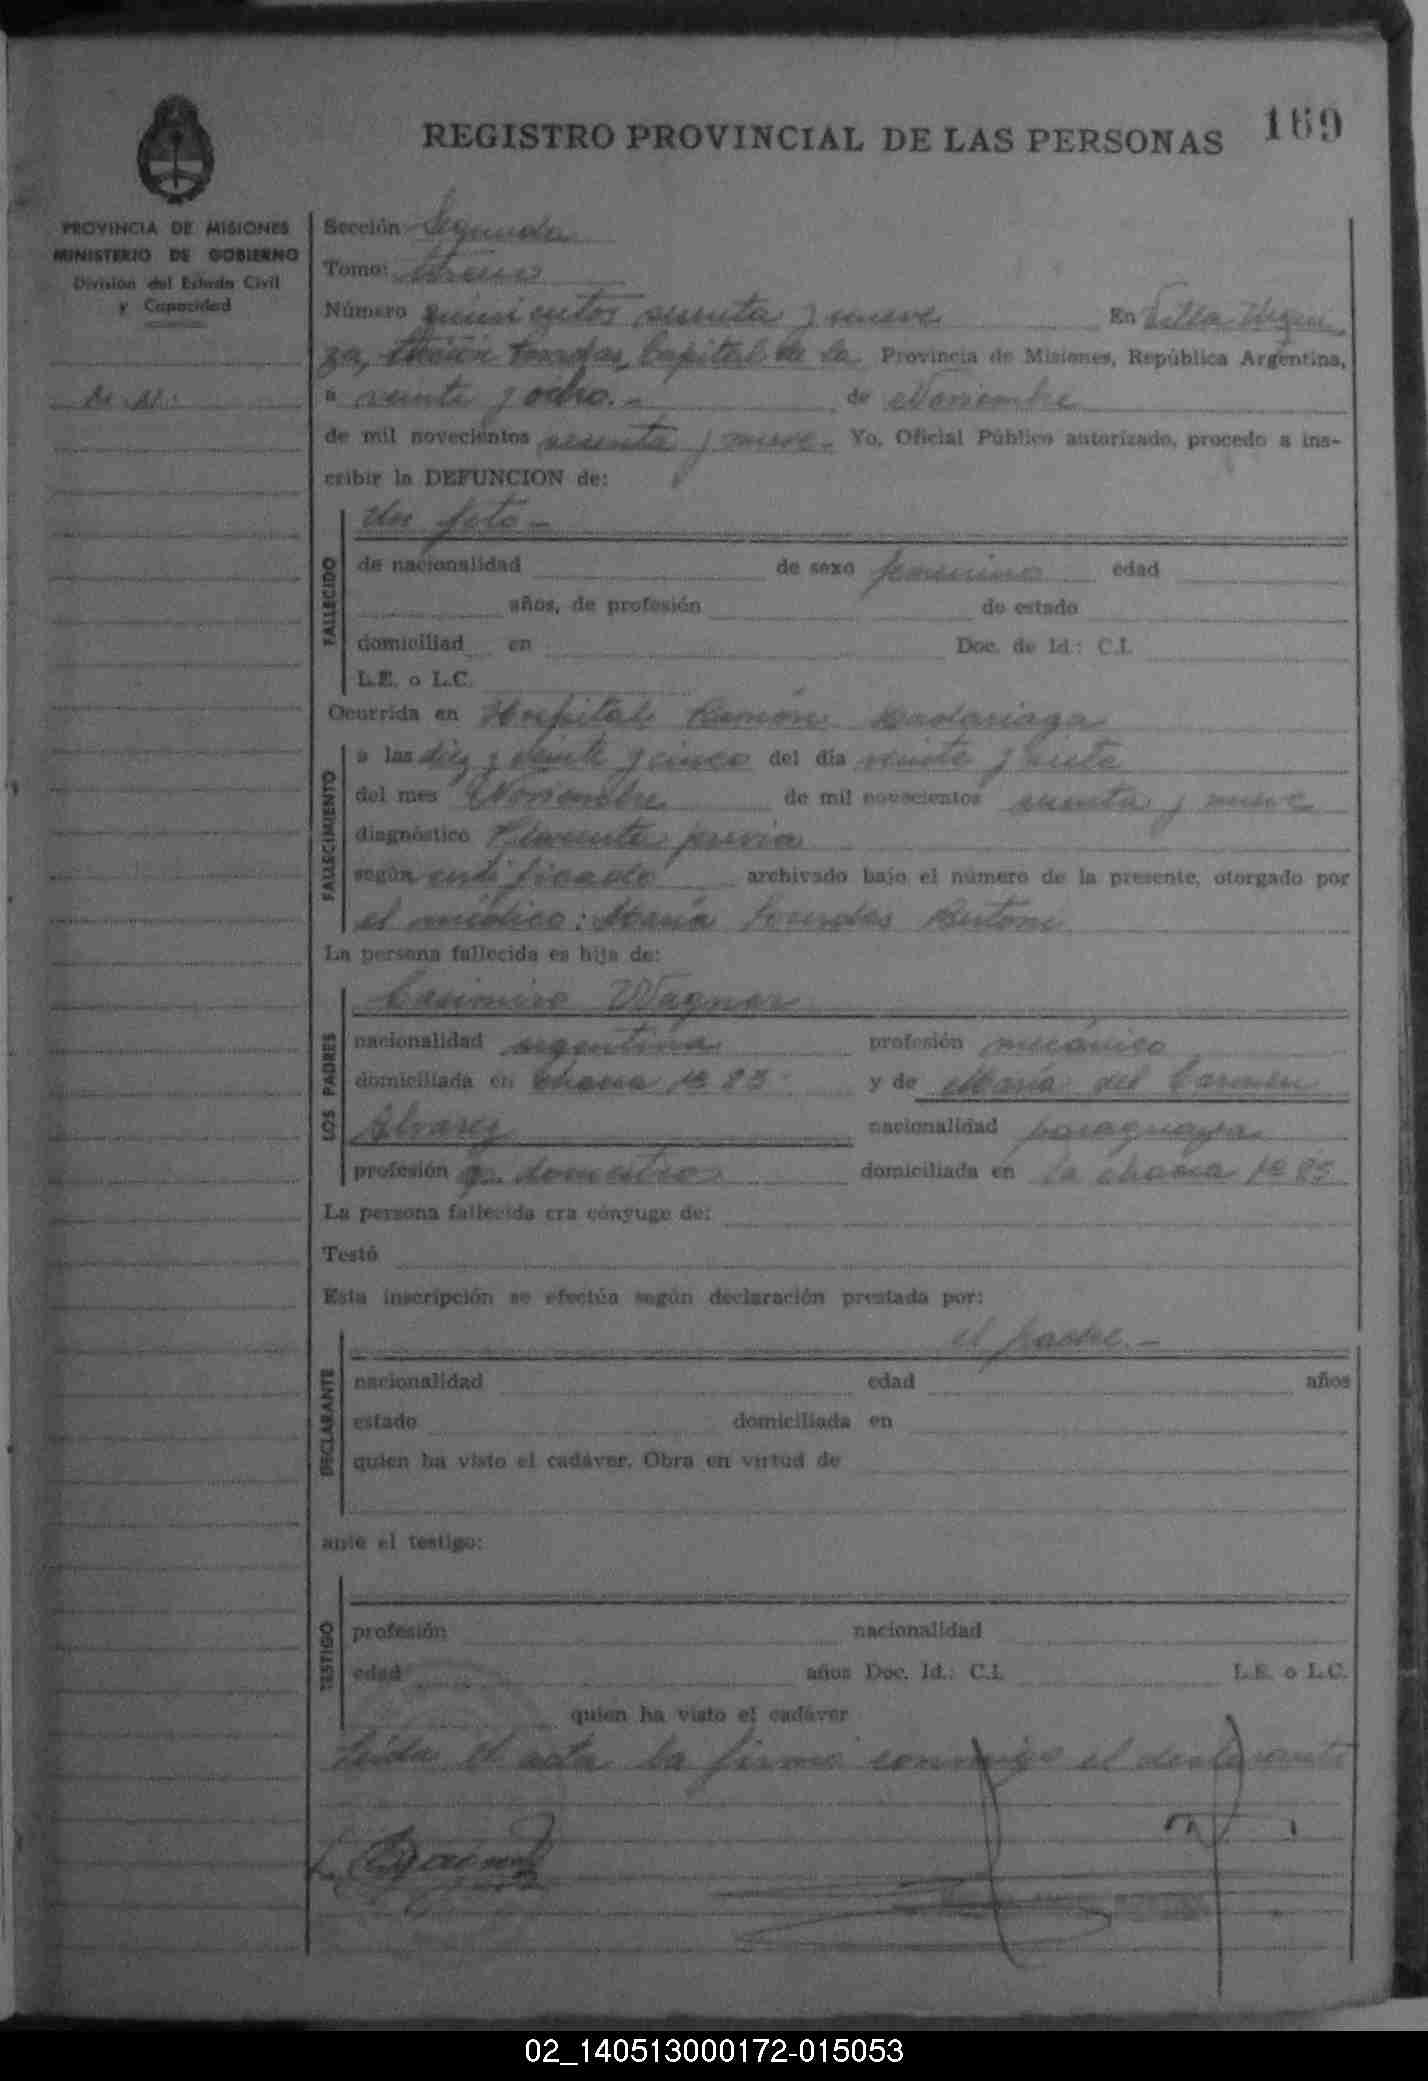 169
REGISTRO PROVINCIAL DE LAS PERSONAS
PROVINCIA DE MISIONES
MINISTERIO DE GOBIERNO
División del Estado Civil
y Capacidad
N.N.
Sección Segunda
Tomo:
Número quinientos sesenta y nueve En Villa
za, Capital de la Provincia de Misiones, República Argentina,
a veinte y ocho.- de Noviembre
de mil novecientos sesenta y nueve. Yo, Oficial Público autorizado, procedo a ins-
cribir la DEFUNCION de:
Un feto -
FALLECIDO
de nacionalidad de sexo femenino edad
años, de profesión de estado
domiciliad en Doc. de Id.: C.I.
L.E. o L.C.
Ocurrida en Hospital Ramón Madariaga
FALLECIMIENTO
a las diez y veinte y cinco del día veinte y siete
del mes Noviembre de mil novecientos sesenta y nueve
diagnóstico Placenta previa
según certificado archivado bajo el número de la presente, otorgado por
el médico: María Lourdes
La persona fallecida es hija de:
LOS PADRES
Casimiro Wagner
nacionalidad argentina profesión mecánico
domiciliada en chacra Nº 85 y de María del Carmen
Alvarez nacionalidad paraguaya
profesión q. domestico domiciliada en la chacra Nº 85
La persona fallecida era cónyuge de:
Testó
Esta inscripción se efectúa según declaración prestada por:
el padre.-
DECLARANTE
nacionalidad edad años
estado domiciliada en
quien ha visto el cadáver. Obra en virtud de
ante el testigo:
TESTIGO
profesión nacionalidad
edad años Doc. Id.: C.I. L.E. o L.C.
quien ha visto el cadáver
Leida el acta la firma conmigo el declarante
02_140513000172-015053